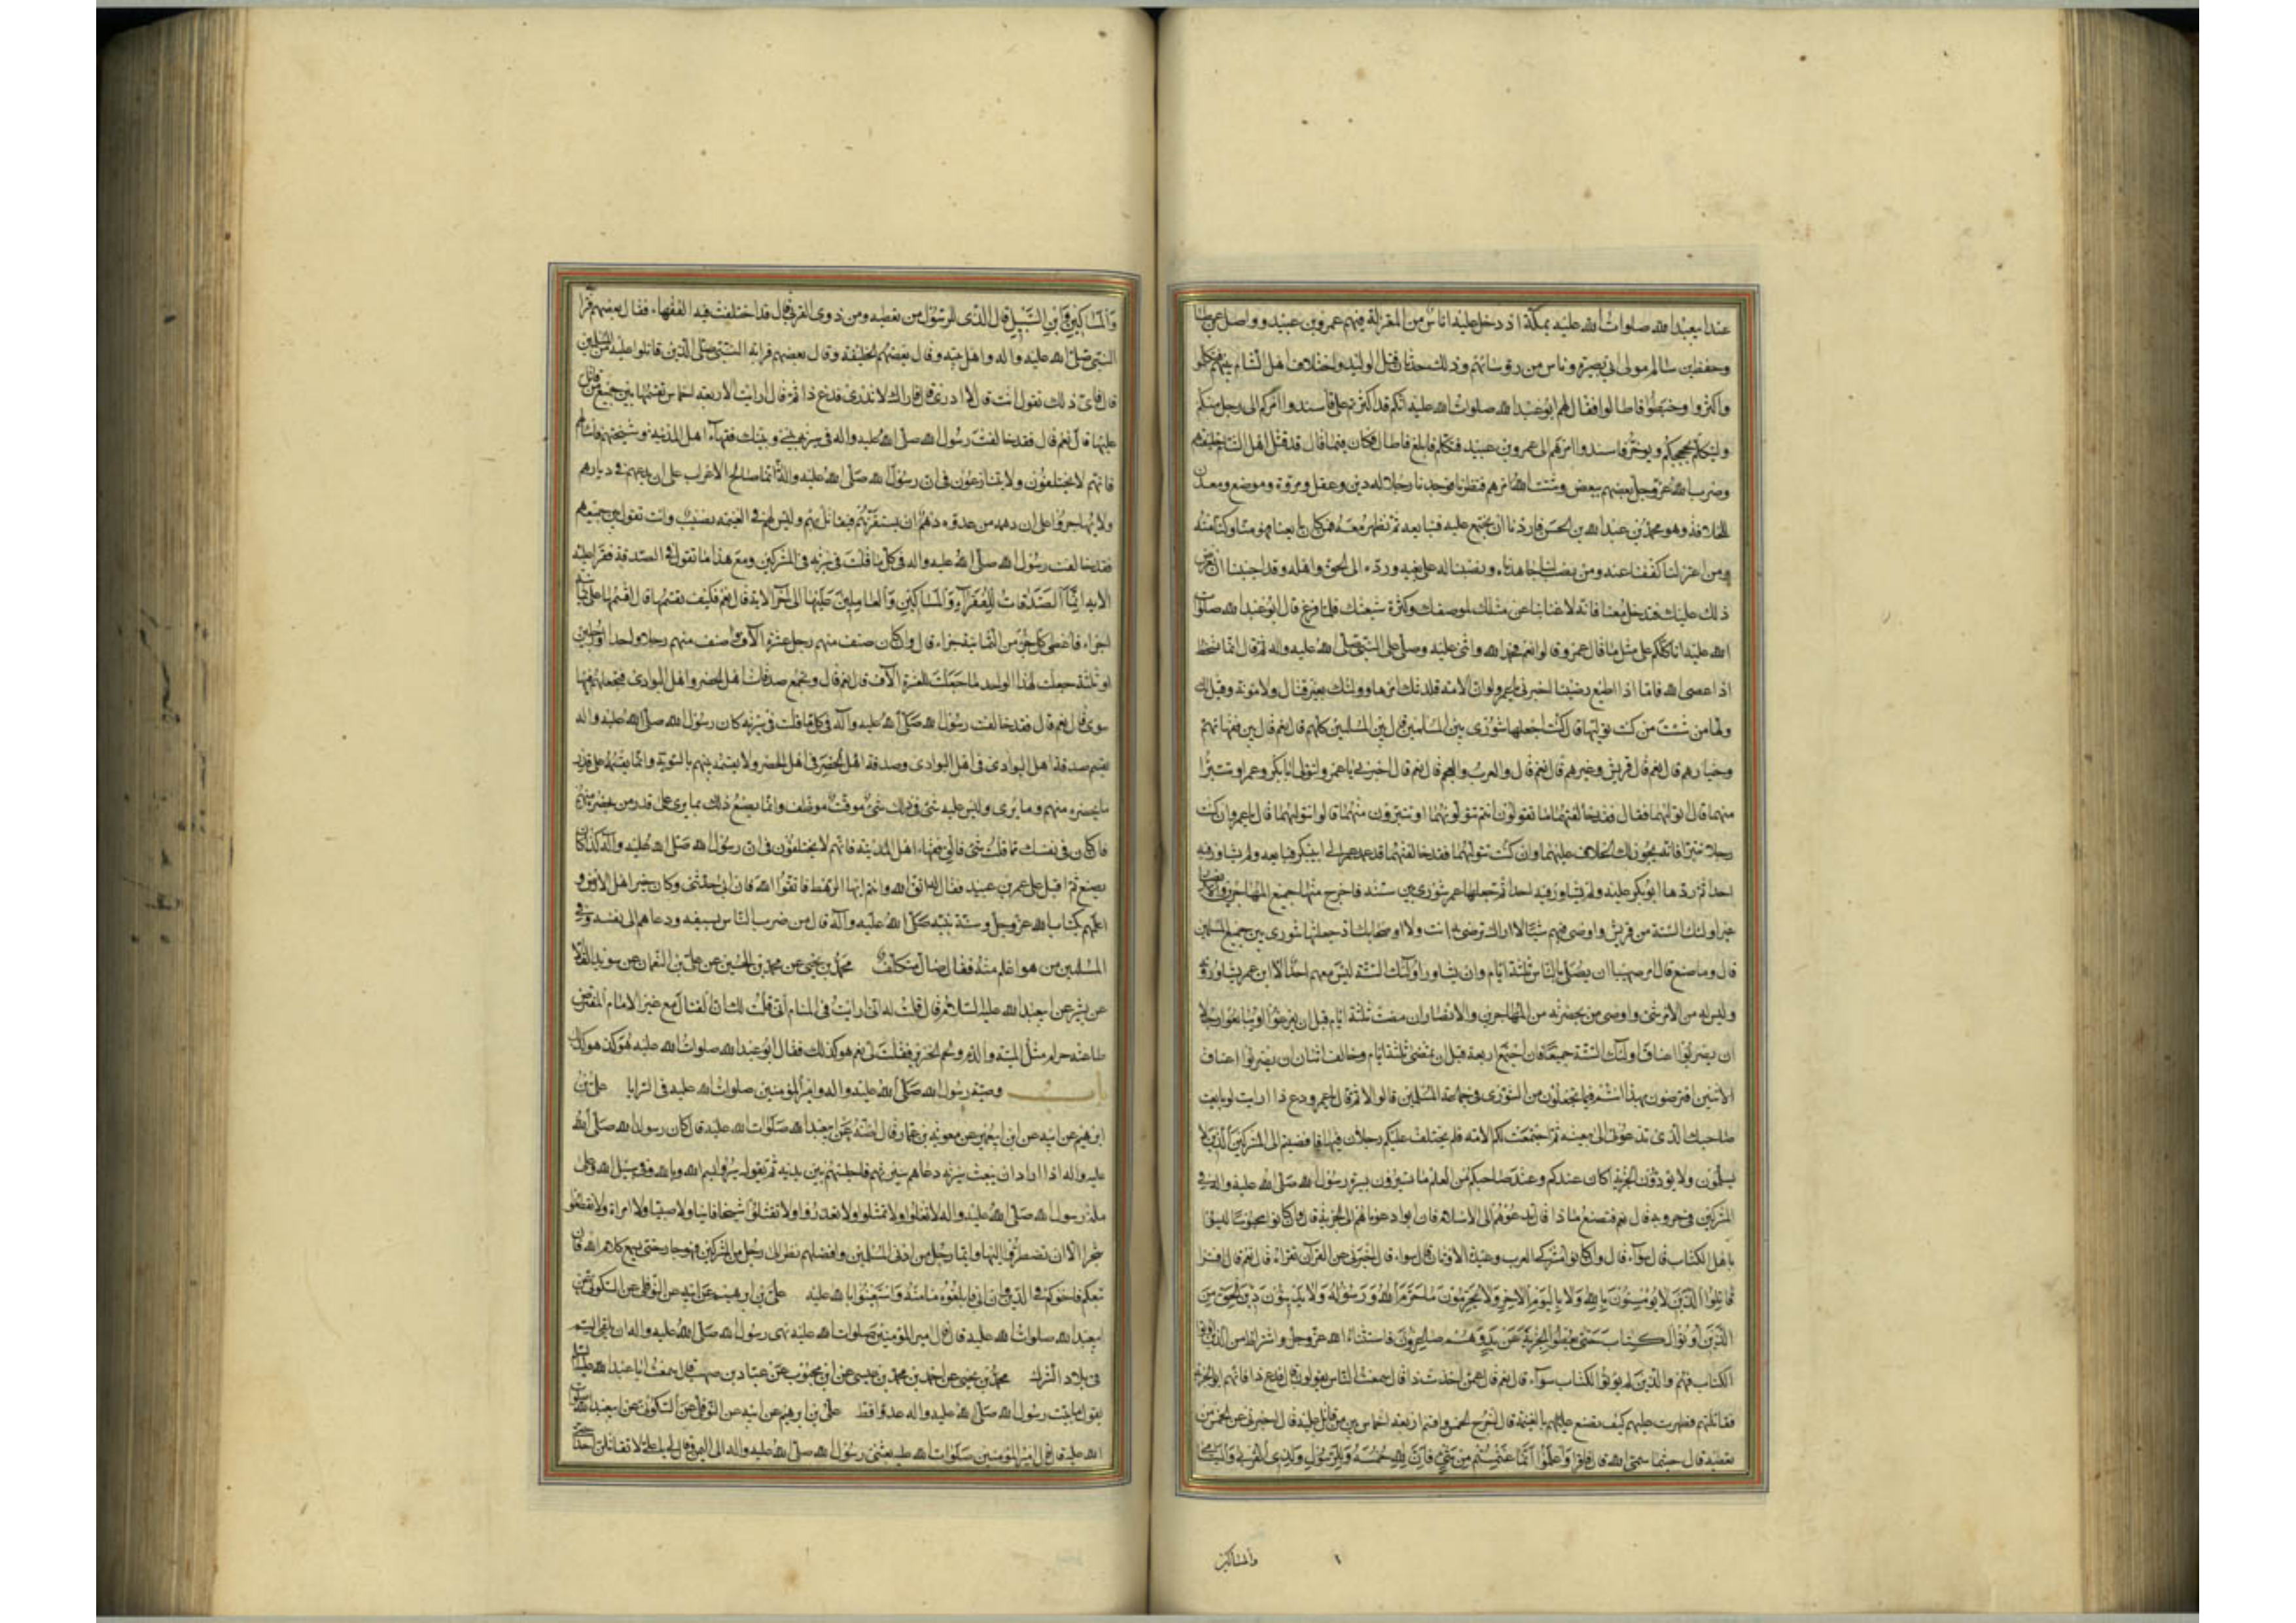 عند ابيعبد الله صلوات الله عليه بمكة اذ دخل عليه اناس من المعتزلة فيهم عمرو بن عبيد وواصل بن عطا
وحفص بن سالم مولى ابي هبيرة وناس من رؤسائهم وذلك حدثان قتل الوليد واختلاف اهل الشام بينهم فتكلموا
واكثروا وخبطوا فاطالوا فقال لهم ابو عبد الله صلوات الله عليه انكم قد اكثرتم علي فاسندوا امركم الى رجل منكم
وليتكلم بحججكم ويوجز فاسندوا امرهم الى عمرو بن عبيد فتكلم فابلغ فاطال فكان فيما قال قد قتل اهل الشام خليفتهم
وضرب الله عز وجل بعضهم ببعض وشتت الله امرهم فنظرنا فوجدنا رجلا له دين وعقل ومروة وموضع ومعدن
للخلافة وهو محمد بن عبد الله بن الحسن فاردنا ان نجتمع عليه فنبايعه ثم نظهر معه فمن كان بايعنا فهو منا وكنا منه
ومن اعتزلنا كففنا عنه ومن نصب لنا جاهدناه ونصبنا له على بغيه ورده الى الحق واهله وقد احببنا ان نعرض
ذلك عليك فتدخل معنا فانه لا غنا بنا عن مثلك لموضعك وكثرة شيعتك فلما فرغ قال ابو عبد الله صلوات
الله عليه اكلكم على مثل ما قال عمرو قالوا نعم فحمد الله واثنى عليه وصلى على النبي صلى الله عليه واله ثم قال انما نسخط
اذا عصي الله فاما اذا اطيع رضينا اخبرني يا عمرو لو ان الامة قلدتك امرها وولتك بغير قتال ولا مؤنة وقيل لك
ولها من شئت من كنت توليها قال كنت اجعلها شورى بين المسلمين قال بين المسلمين كلهم قال نعم قال بين فقهائهم
وخيارهم قال نعم قال قريش وغيرهم قال نعم قال والعرب والعجم قال نعم قال اخبرني يا عمرو اتتولى ابا بكر وعمر او تتبرا
منهما قال اتولاهما فقال فقد خالفتهما ما تقولون انتم تتولونهما او تتبرون منهما قالوا نتولاهما قال يا عمرو ان كنت
رجلا تتبرا منهما فانه يجوز لك الخلاف عليهما وان كنت تتولاهما فقد خالفتهما قد عهد عمر الى ابي بكر فبايعه ولم يشاور فيه
احدا ثم ردها ابو بكر عليه ولم يشاور فيه احدا ثم جعلها عمر شورى بين ستة فاخرج منها جميع المهاجرين والانصار
غير اولئك الستة من قريش واوصى فيهم شيئا لا اراك ترضى به انت ولا اصحابك اذ جعلتها شورى بين جميع المسلمين
قال وما صنع قال امر صهيبا ان يصلي بالناس ثلثة ايام وان يشاور اولئك الستة ليس معهم احد الا ابن عمر يشاورونه
وليس له من الامر شئ واوصى من بحضرته من المهاجرين والانصار ان مضت ثلثة ايام قبل ان يفرغوا او يبايعوا رجلا
ان يضربوا اعناق اولئك الستة جميعا فان اجتمع اربعة قبل ان تمضي ثلثة ايام وخالف اثنان ان يضربوا اعناق
الاثنين افترضون بهذا انتم فيما تجعلون من الشورى في جماعة المسلمين قالوا لا ثم قال يا عمرو دع ذا ارايت لو بايعت
صاحبك الذي تدعوني الى بيعته ثم اجتمعت لكم الامة فلم يختلف عليكم رجلان فيها فافضيتم الى المشركين الذين لا
يسلمون ولا يؤدون الجزية اكان عندكم وعند صاحبكم من العلم ما تسيرون بسيرة رسول الله صلى الله عليه واله في
المشركين في حروبه قال نعم قال فتصنع ماذا قال ندعوهم الى الاسلام فان ابوا دعوناهم الى الجزية قال وان كانوا مجوسا ليسوا
باهل الكتاب قال سواء قال وان كانوا مشركي العرب وعبدة الاوثان قال سواء قال اخبرني عن القران تقراه قال نعم قال اقرا
قاتلوا الذين لا يؤمنون بالله ولا باليوم الاخر ولا يحرمون ما حرم الله ورسوله ولا يدينون دين الحق من
الذين اوتوا الكتاب حتى يعطوا الجزية عن يد وهم صاغرون فاستثناء الله عز وجل واشتراطه من الذين اوتوا
الكتاب فهم والذين لم يؤتوا الكتاب سواء قال نعم قال عمن اخذت ذا قال سمعت الناس يقولون قال فدع ذا فانهم ابوا الجزية
فقاتلتهم فظهرت عليهم كيف تصنع بالغنيمة قال اخرج الخمس واقسم اربعة اخماس بين من قاتل عليه قال اخبرني عن الخمس من
تعطيه قال حيثما سمى الله قال فقرا واعلموا انما غنمتم من شئ فان لله خمسه وللرسول ولذي القربى واليتامى
والمساكين
والمساكين وابن السبيل قال الذي للرسول من تعطيه ومن ذوي القربى قال قد اختلفت فيه الفقهاء فقال بعضهم قرابة
النبي صلى الله عليه واله واهل بيته وقال بعضهم الخليفة وقال بعضهم قرابة الذين قاتلوا عليه من المسلمين
قال فاي ذلك تقول انت قال لا ادري قال فاراك لا تدري فدع ذا ثم قال ارايت الاربعة اخماس تقسمها بين جميع من قاتل
عليها قال نعم قال فقد خالفت رسول الله صلى الله عليه واله في سيرته بيني وبينك فقهاء اهل المدينة ومشيختهم فاسالهم
فانهم لا يختلفون ولا يتنازعون في ان رسول الله صلى الله عليه واله انما صالح الاعراب على ان يدعهم في ديارهم
ولا يهاجروا على ان دهمه من عدوه دهم ان يستفزهم فيقاتل بهم وليس لهم في الغنيمة نصيب وانت تقول بين جميعهم
فقد خالفت رسول الله صلى الله عليه واله في كل ما قلت في سيرته في المشركين ومع هذا ما تقول في الصدقة فقرا عليه
الاية انما الصدقات للفقراء والمساكين والعاملين عليها الى اخر الاية قال نعم فكيف تقسمها قال اقسمها على ثمانية
اجزاء فاعطي كل جزء من الثمانية جزءا قال وان كان صنف منهم رجل عشرة الاف وصنف منهم رجلا واحدا او رجلين
او ثلثة جعلت لهذا الواحد ما جعلت للعشرة الاف قال نعم قال وتجمع صدقات اهل الحضر واهل البوادي فتجعلهم فيها
سوى قال نعم قال فقد خالفت رسول الله صلى الله عليه واله في كل ما قلت في سيرته كان رسول الله صلى الله عليه واله
يقسم صدقة اهل البوادي في اهل البوادي وصدقة اهل الحضر في اهل الحضر ولا يقسمه بينهم بالسوية وانما يقسمه على قدر
ما يحضره منهم وما يرى وليس عليه شئ في ذلك شئ موقت موظف وانما يصنع ذلك بما يرى على قدر من يحضره منهم
فان كان في نفسك مما قلت شئ فالق فقهاء اهل المدينة فانهم لا يختلفون في ان رسول الله صلى الله عليه واله كذا كان
يصنع ثم اقبل على عمرو بن عبيد فقال له اتق الله وانتم ايها الرهط فاتقوا الله فان ابي حدثني وكان خير اهل الارض و
اعلمهم بكتاب الله عز وجل وسنة نبيه صلى الله عليه واله قال من ضرب الناس بسيفه ودعاهم الى نفسه وفي
المسلمين من هو اعلم منه فقال ضال متكلف محمد بن يحيى عن محمد بن الحسين عن علي بن النعمان عن سويد القلا
عن بشير عن ابيعبد الله عليه السلام قال قلت له اني رايت في المنام اني قلت لك ان القتال مع غير الامام المفترض
طاعته حرام مثل الميتة والدم ولحم الخنزير فقلت لي نعم هو كذلك فقال ابو عبد الله صلوات الله عليه هو كذلك هو كذلك
باب وصية رسول الله صلى الله عليه واله وامير المؤمنين صلوات الله عليه في السرايا علي بن
ابرهيم عن ابيه عن ابن ابي عمير عن معوية بن عمار قال اظنه عن ابيعبد الله صلوات الله عليه قال كان رسول الله صلى الله
عليه واله اذا اراد ان يبعث سرية دعاهم فاجلسهم بين يديه ثم يقول سيروا بسم الله وبالله وفي سبيل الله وعلى
ملة رسول الله صلى الله عليه واله لا تغلوا ولا تمثلوا ولا تغدروا ولا تقتلوا شيخا فانيا ولا صبيا ولا امراة ولا تقطعوا
شجرا الا ان تضطروا اليها وايما رجل من ادنى المسلمين وافضلهم نظر الى رجل من المشركين فهو جار حتى يسمع كلام الله فان
تبعكم فاخوكم في الدين وان ابى فابلغوه مامنه واستعينوا بالله عليه علي بن ابرهيم عن ابيه عن النوفلي عن السكوني عن
ابيعبد الله صلوات الله عليه قال قال امير المؤمنين صلوات الله عليه نهى رسول الله صلى الله عليه واله ان يلقى السم
في بلاد الشرك محمد بن يحيى عن احمد بن محمد بن عيسى عن ابن محبوب عن عباد بن صهيب قال سمعت ابا عبد الله
يقول ما بيت رسول الله صلى الله عليه واله عدوا قط علي بن ابرهيم عن ابيه عن النوفلي عن السكوني عن ابيعبد الله صلوات
الله عليه قال قال امير المؤمنين صلوات الله عليه بعثني رسول الله صلى الله عليه واله الى اليمن وقال لي يا علي لا تقاتلن احدا حتى